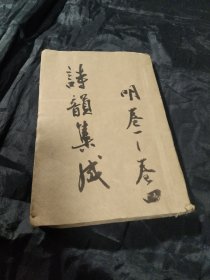 明卷一—卷四
詩韻集成